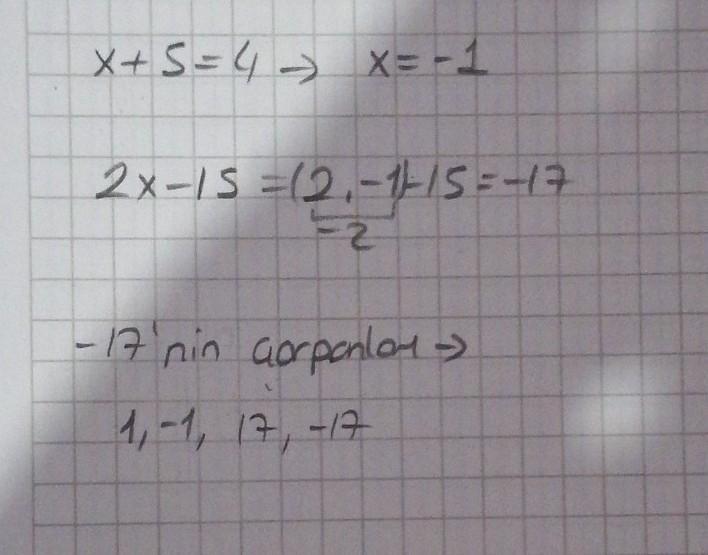 x+5=4 → x=-1
2x-15=(2.-1)-15=-17
-2
-17'nin çarpanları →
1, -1, 17, -17